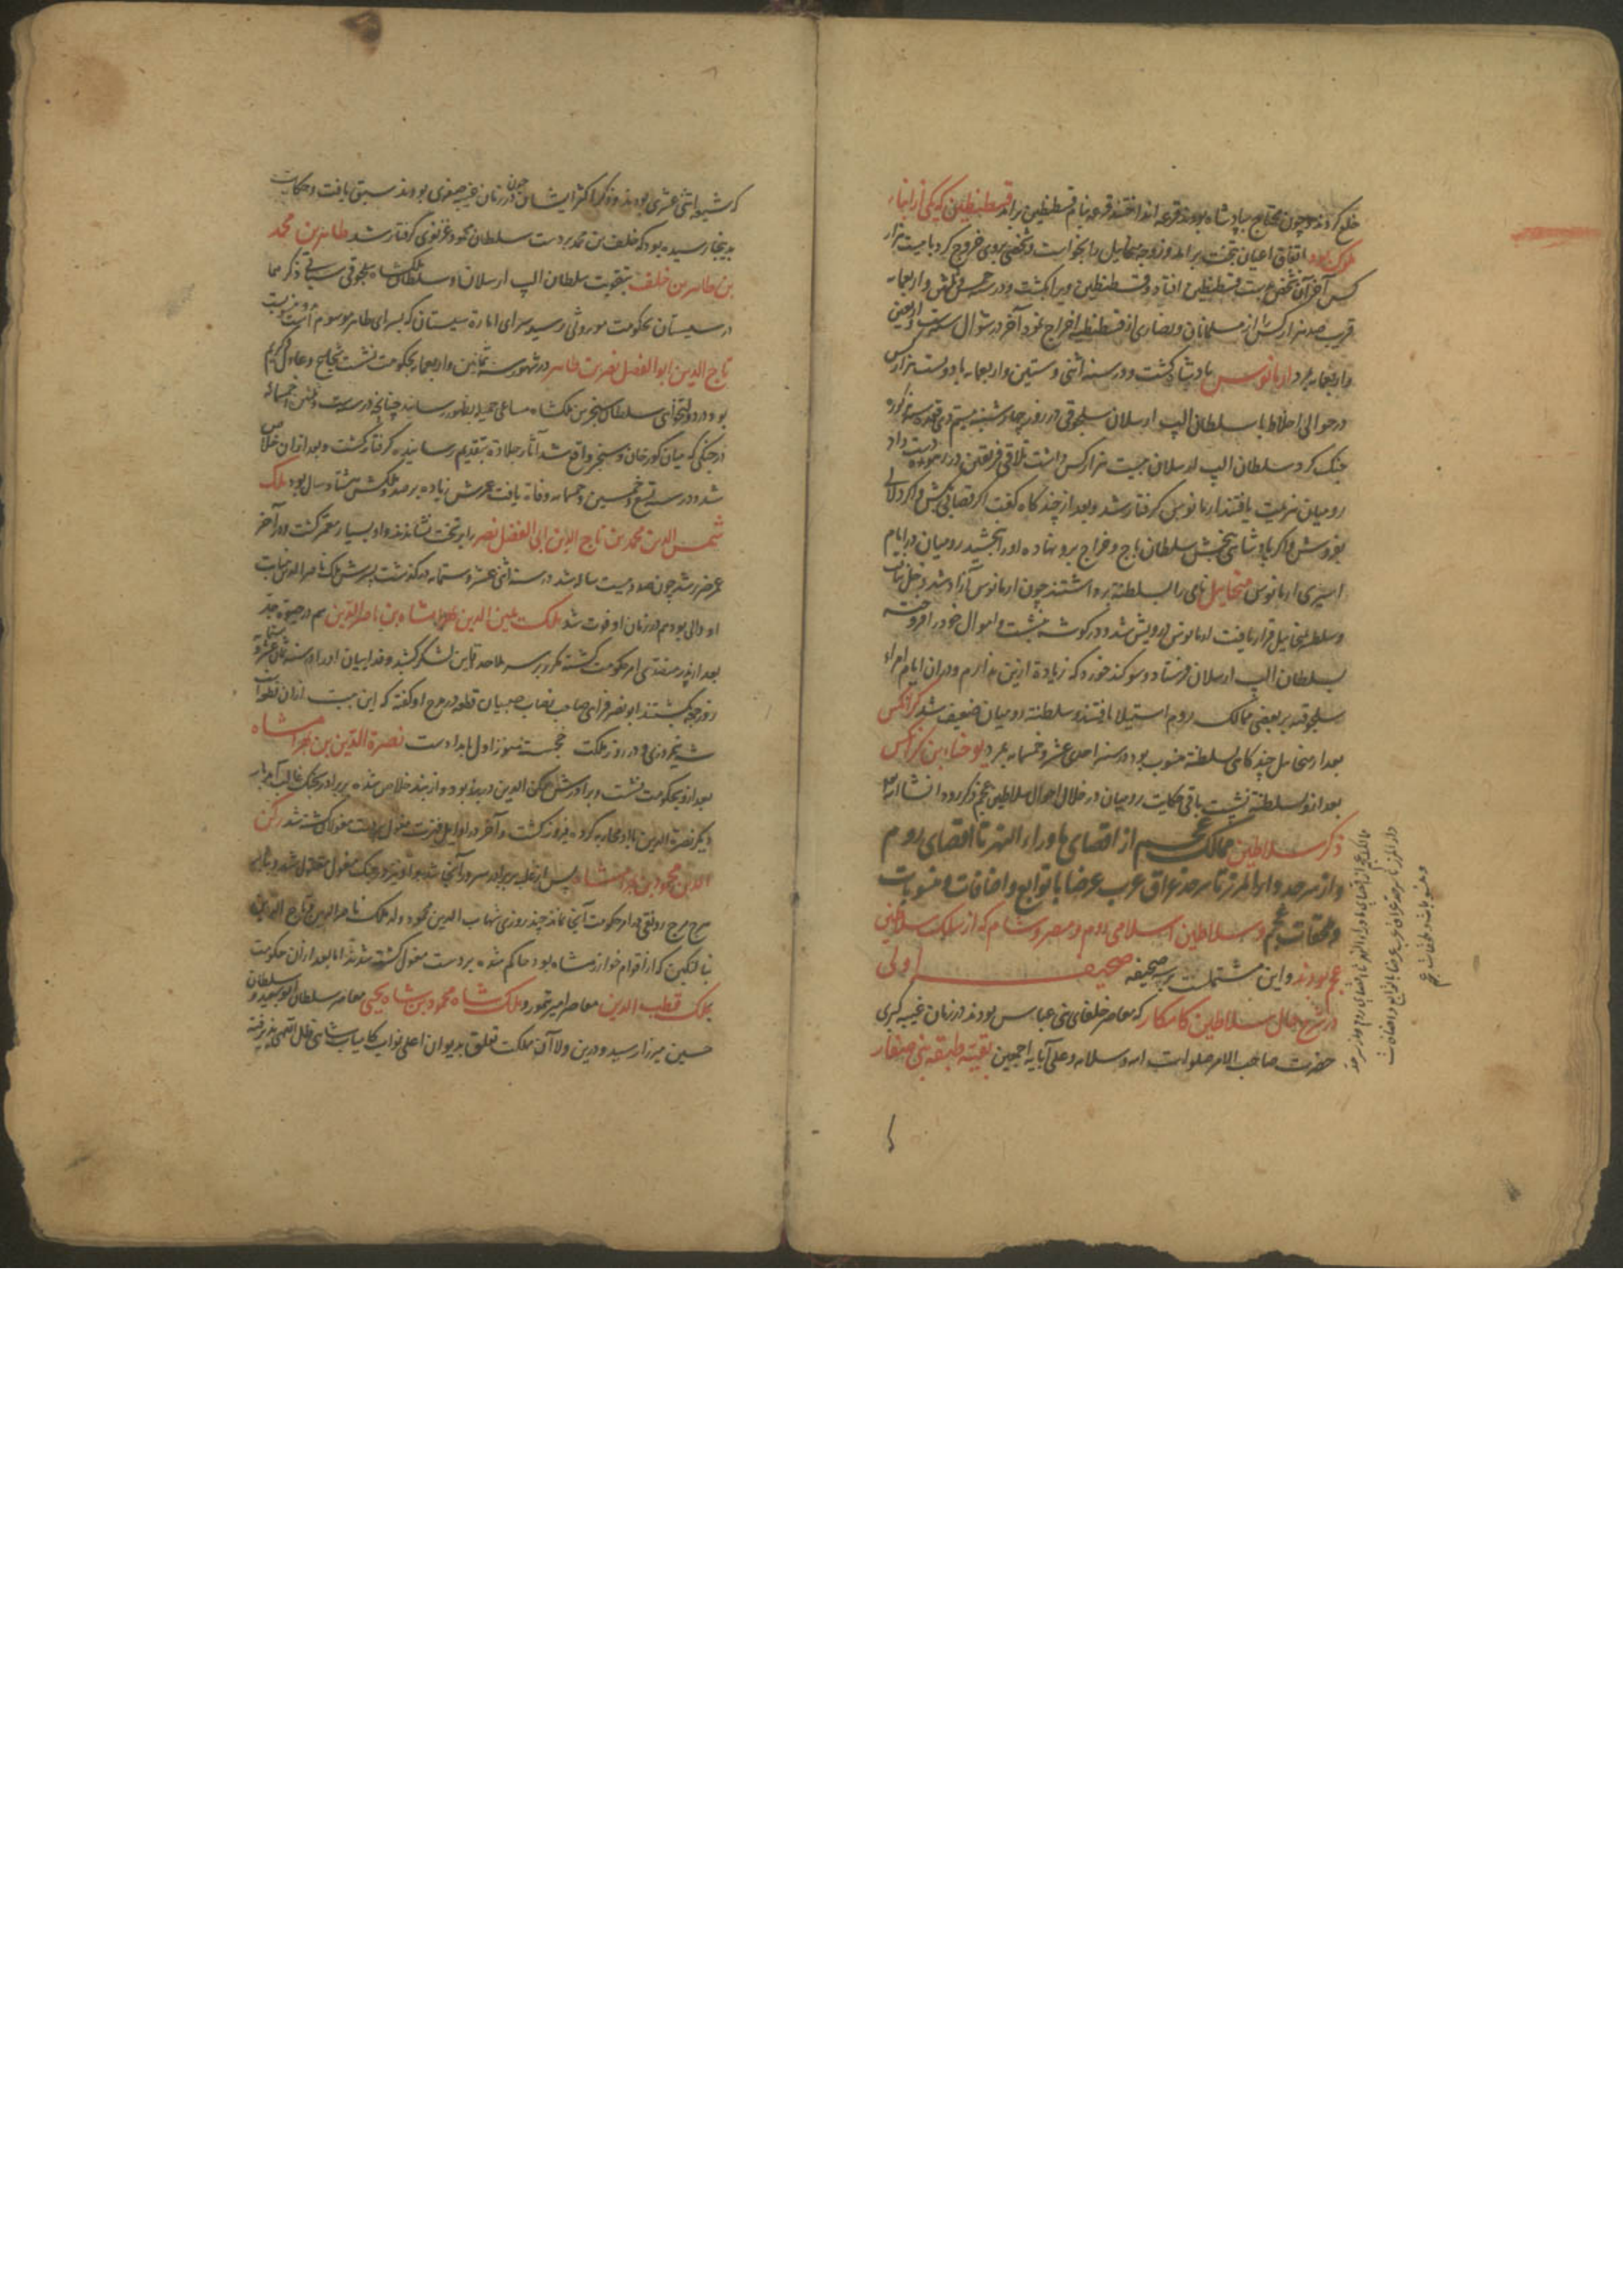 خلع کردند و چون محتاج بپادشاه بودند قرعه انداختند قرعه بنام قسطنطین برآمد قسطنطین که یکی از ابناء
ملوک بود باتفاق اعیان بتخت برآمد و زوجه میخاییل را بخواست و شخصی بروی خروج کرد با بیست هزار
کس آخر آن شخص بدست قسطنطین افتاد و قسطنطین ویرا بکشت و در خمس و ثلثین و اربعمایه
قریب صد هزار کس از مسلمانان و نصاری از قسطنطنیه اخراج نمود آخر در شوال سنه ست و اربعین
و اربعمایه بمرد ارمانوس پادشاه گشت و در سنه اثنی و ستین و اربعمایه با دویست هزار کس
در حوالی اخلاط با سلطان الپ ارسلان سلجوقی در روز چهارشنبه بیستم ذی قعده سنه مذکوره
جنگ کرد سلطان الپ ارسلان بیست هزار کس داشت تلاقی فریقین در دست داد
رومیان هزیمت یافتند ارمانوس گرفتار شد و بعد از چند گاه گفت اگر قصابی بکش و اگر دلالی
بفروش و اگر پادشاهی ببخش سلطان باج و خراج برو نهاده او را ببخشید رومیان در ایام
اسیری ارمانوس میخاییل نامی را بسلطنت برداشتند چون ارمانوس آزاد شد
و سلطنت بمیخاییل قرار یافت ارمانوس درویش شد و در گوشه نشست و اموال خود را فروخته
بسلطان الپ ارسلان فرستاد و سوکند خورد که زیاده ازین ندارم و در آن ایام امراء
سلجوقیه بر بعضی ممالک روم استیلا یافتند و سلطنت رومیان ضعیف شد کزانکس
بعد از میخاییل چند گاهی سلطنت منسوب بود در سنه احدی عشر و خمسمایه بمرد یوحنا بن کزانکس
بعد ازو بسلطنت نشست باقی حکایت رومیان در خلال احوال سلاطین عجم مذکور گردد انشا الله
ذکر سلاطین ممالک عجم از اقصای ماوراء النهر تا اقصای روم
و از سرحد دار المرز تا سرحد عراق عرب عرضا با توابع و اضافات و منسوبات
و ملحقات عجم و سلاطین اسلامی روم و مصر و شام که از سلک سلاطین
عجم بودند و این مشتملست بر سه صحیفه صحیفه اولی
در شرح حال سلاطین کامکار که معاصر خلفای بنی عباس بودند در زمان غیبه کبری
حضرت صاحب الامر صلوات الله و سلامه و علی آبایه اجمعین بقیه طبقه بنی صفار
ممالک عجم از اقصای ماوراء النهر تا اقصای روم و از سرحد
دار المرز تا سرحد عراق عرب عرضا با توابع و اضافات
و منسوبات و ملحقات عجم
که شیعه اثنی عشری بودند و ذکر اکثر ایشان چون در زمان غیبه صغری بودند سبق یافت و حکایت
بدینجا رسیده بود که خلف بن محمد بر دست سلطان محمود غزنوی گرفتار شد طاهر بن محمد
بن طاهر بن خلف بتقویت سلطان الپ ارسلان و سلطان ملکشاه سلجوقی سیاتی ذکرهما
در سیستان بحکومت موروثی رسید و سرای اماره سیستان که بسرای طاهر موسوم است
تاج الدین ابو الفضل نصر بن طاهر در شهور سنه ثمانین و اربعمایه بحکومت نشست شجاع و عادل و کریم
بود در دولتخواهی سلطان سنجر بن ملکشاه مساعی جمیله بظهور رسانید چنانچه در سنه ست و ثلثین و خمسمائه
در جنگی که میان کورخان و سنجر واقع شد آثار جلادت بتقدیم رسانیده گرفتار گشت و بعد از آن خلاص
شد و در سنه تسع و خمسین و خمسمایه وفات یافت عمرش زیاده بر صد و ملکش هشتاد سال بود ملک
شمس الدین محمد بن تاج الدین ابی الفضل نصر را بر تخت نشاندند و او بسیار معمر گشت در آخر
عمر ضریر شد چون صد و بیست ساله شد در سنه اثنی عشر و ستمایه درگذشت پسرش ملک ناصر الدین بنیابت
او والی بود هم در زمان او فوت شد ملک یمین الدین بهرامشاه بن ناصر الدین هم در حیوة جد
بعد از پدر متصدی امر حکومت گشته مکرر بر سر ملاحده قاین لشکر کشید و فداییان او را در سنه ثمان عشر و ستمایه
روز جمعه بکشتند ابو نصر فراهی صاحب نصاب صبیان قطعه در مدح او گفته که این بیت از آن قطعه است
شه نیمروزی و در روز ملکت خجسته هنوز اول بامدادست نصرة الدین بن بهرامشاه
بعد ازو بحکومت نشست و برادرش رکن الدین در بند بود و از بند خلاص شده بر برادر بجنگ غالب آمد بار
دیگر نصرة الدین با او محاربه کرده فیروز گشت و آخر در اوایل فترت مغول بر دست مغولان کشته شد رکن
الدین محمود بن بهرامشاه پس از غلبه بر برادر سرور آنجا شد و او نیز در جنگ مغول مقتول شد و بنابر
هرج مرج رونقی در امر حکومت آنجا نماند چند روزی شهاب الدین محمود ولد ملک ناصر الدین و تاج الدین
نیالتکین که از اقوام خوارزمشاه بود حاکم شده بر دست مغول کشته شدند اما بعد از آن حکومت
بملک قطب الدین معاصر امیر تیمور و ملک شاه محمود بن شاه یحیی معاصر سلطان ابو سعید و سلطان
حسین میرزا رسید و درین ولا آن مملکت تعلق بدیوان اعلی نواب کامیاب شاهی ظل اللهی پذیرفته